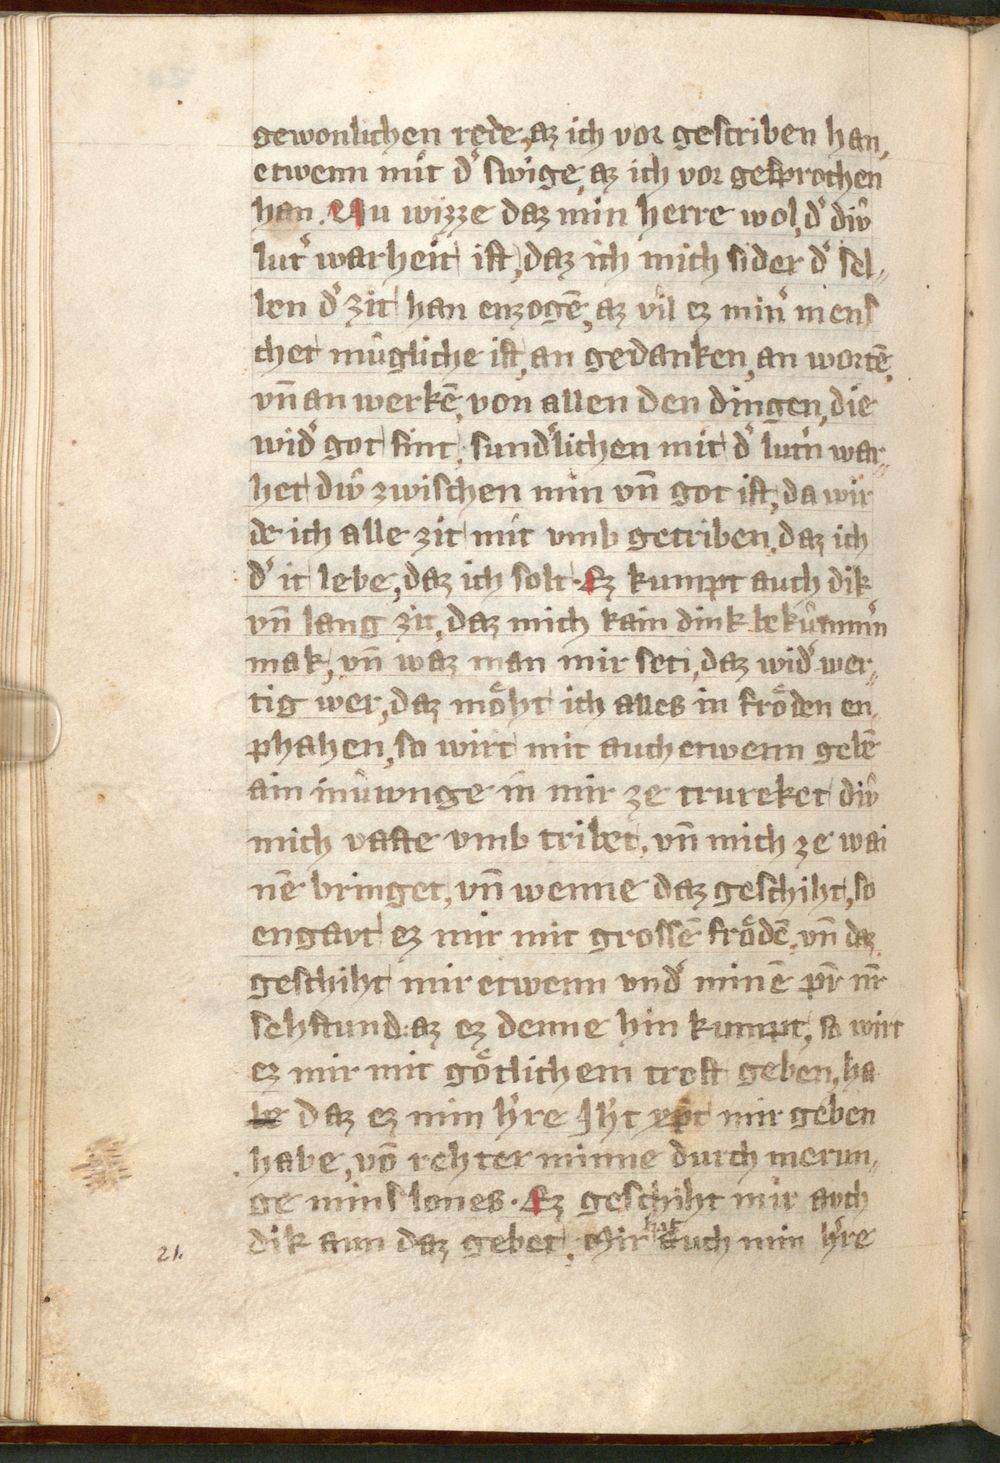 gewonlichen rede, az ich vor gescriben han,
etwenn mit dˀ swige, az ich vor gesprochen
han. Nu wizze daz min herre wol, dˀ diͮ
lutˀ warheit ist, daz ich mich sider dˀ sel„
ben dˀ zit han enzogē, az vil ez minˀ mens
chet muͤgliche ist, an gedanken, an wortē,
vn̄ an werkē, von allen den dingen, die
widˀ got sint. sundˀlichen mit dˀ lutˀn war„
het diͮ zwischen min vn̄ got ist, da wir
de ich alle zit mit vmb getriben, daz ich
dˀ it lebe, daz ich solt. Ez kumpt auch dik
vn̄ lang zit, daz mich kain dink bekuͤmmˀn
mak, vn̄ waz man mir seti, daz widˀ wer„
tig wer, daz moͤht ich alles in froͤden en„
phahen, so wirt mir auch etwenn gebē
ain inuͤwnge in mir ze trureket diͮ
mich vaste vmb tribet, vn̄ mich ze wai
nē bringet, vn̄ wenne daz geschiht, so
engavt ez mir mit grossē froͤdē, vn̄ daz
geschiht mir etwenn vndˀ minē pr̄ nr̄
sehstund: az ez denne hin kumpt, so wirt
ez mir mit goͤtlichem trost geben, ha
be daz ez min hˀre Jhˀt xp̄t mir geben
habe, vō rehter minne durch merun„
ge mins lones. Ez geschiht mir auch
dik ann daz gebet. Mir hat auch min hˀre
21.